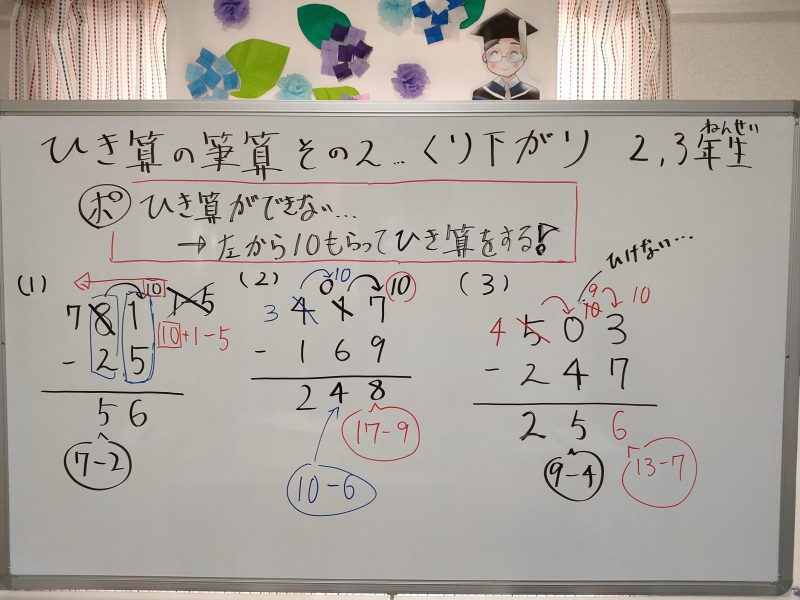 ひき算の筆算 その2…くり下がり 2,3年生
ねんせい
ポ ひき算ができない…
→ 左から10もらってひき算をする!
(1)
10 1-5
7 8 1
10+1-5
- 2 5
5 6
7-2
(2)
0 10 10
3 4 1 7
- 1 6 9
2 4 8
17-9
10-6
(3)
ひけない…
9 10
10
4 5 0 3
- 2 4 7
2 5 6
9-4 13-7